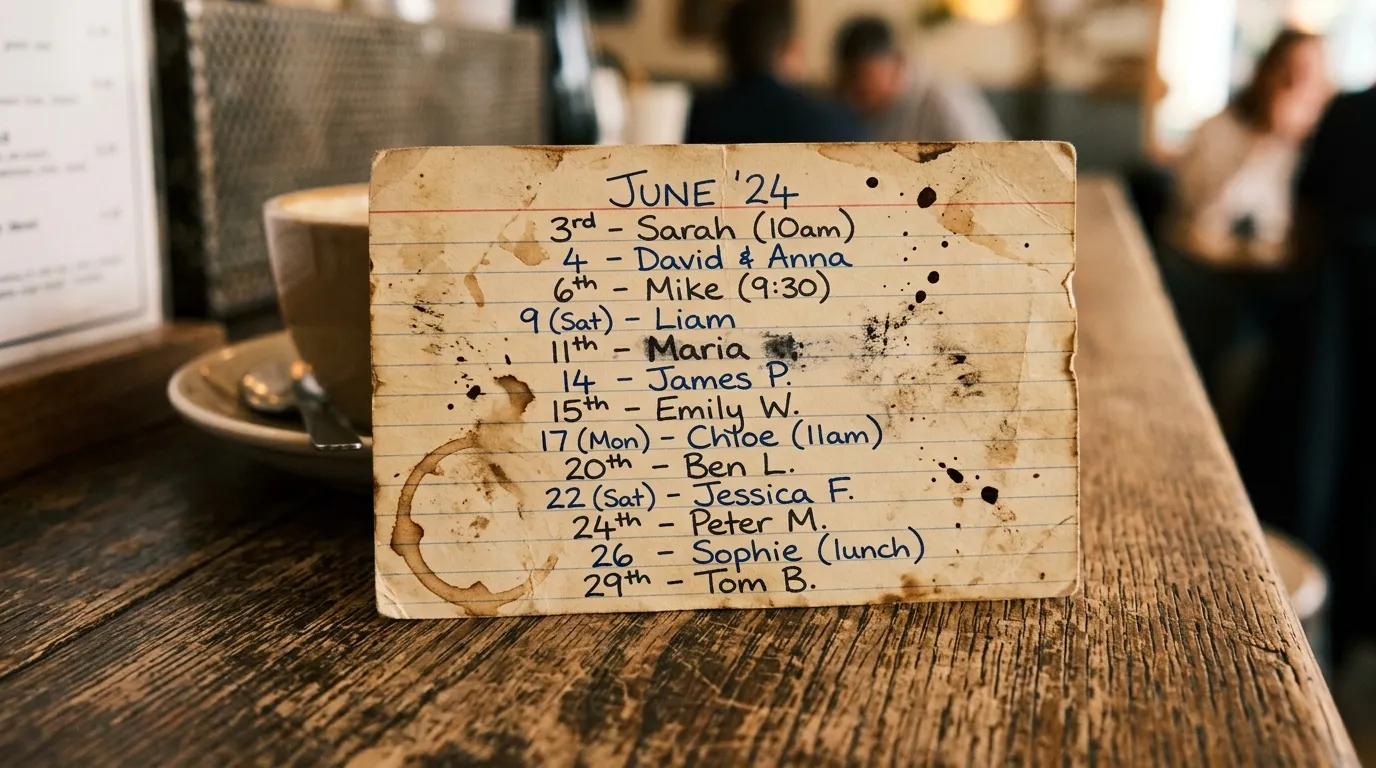 JUNE '24
3rd – Sarah (10am)
4 – David & Anna
6th – Mike (9:30)
9 (Sat) – Liam
11th – Maria
14 – James P.
15th – Emily W.
17 (Mon) – Chloe (11am)
20th – Ben L.
22 (Sat) – Jessica F.
24th – Peter M.
26 – Sophie (lunch)
29th – Tom B.